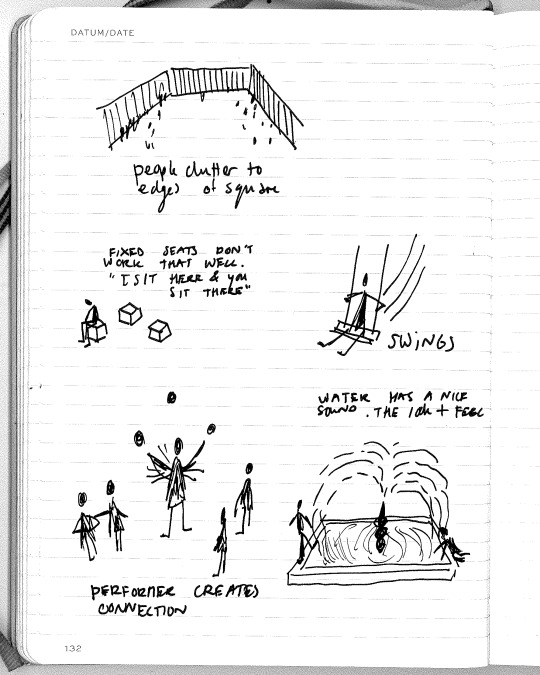 DATUM/DATE
people clutter to
edges of square
FIXED SEATS DON'T
WORK THAT WELL.
"I SIT HERE & YOU
SIT THERE"
SWINGS
WATER HAS A NICE
SOUND. THE look + FEEL
PERFORMER CREATES
CONNECTION
132